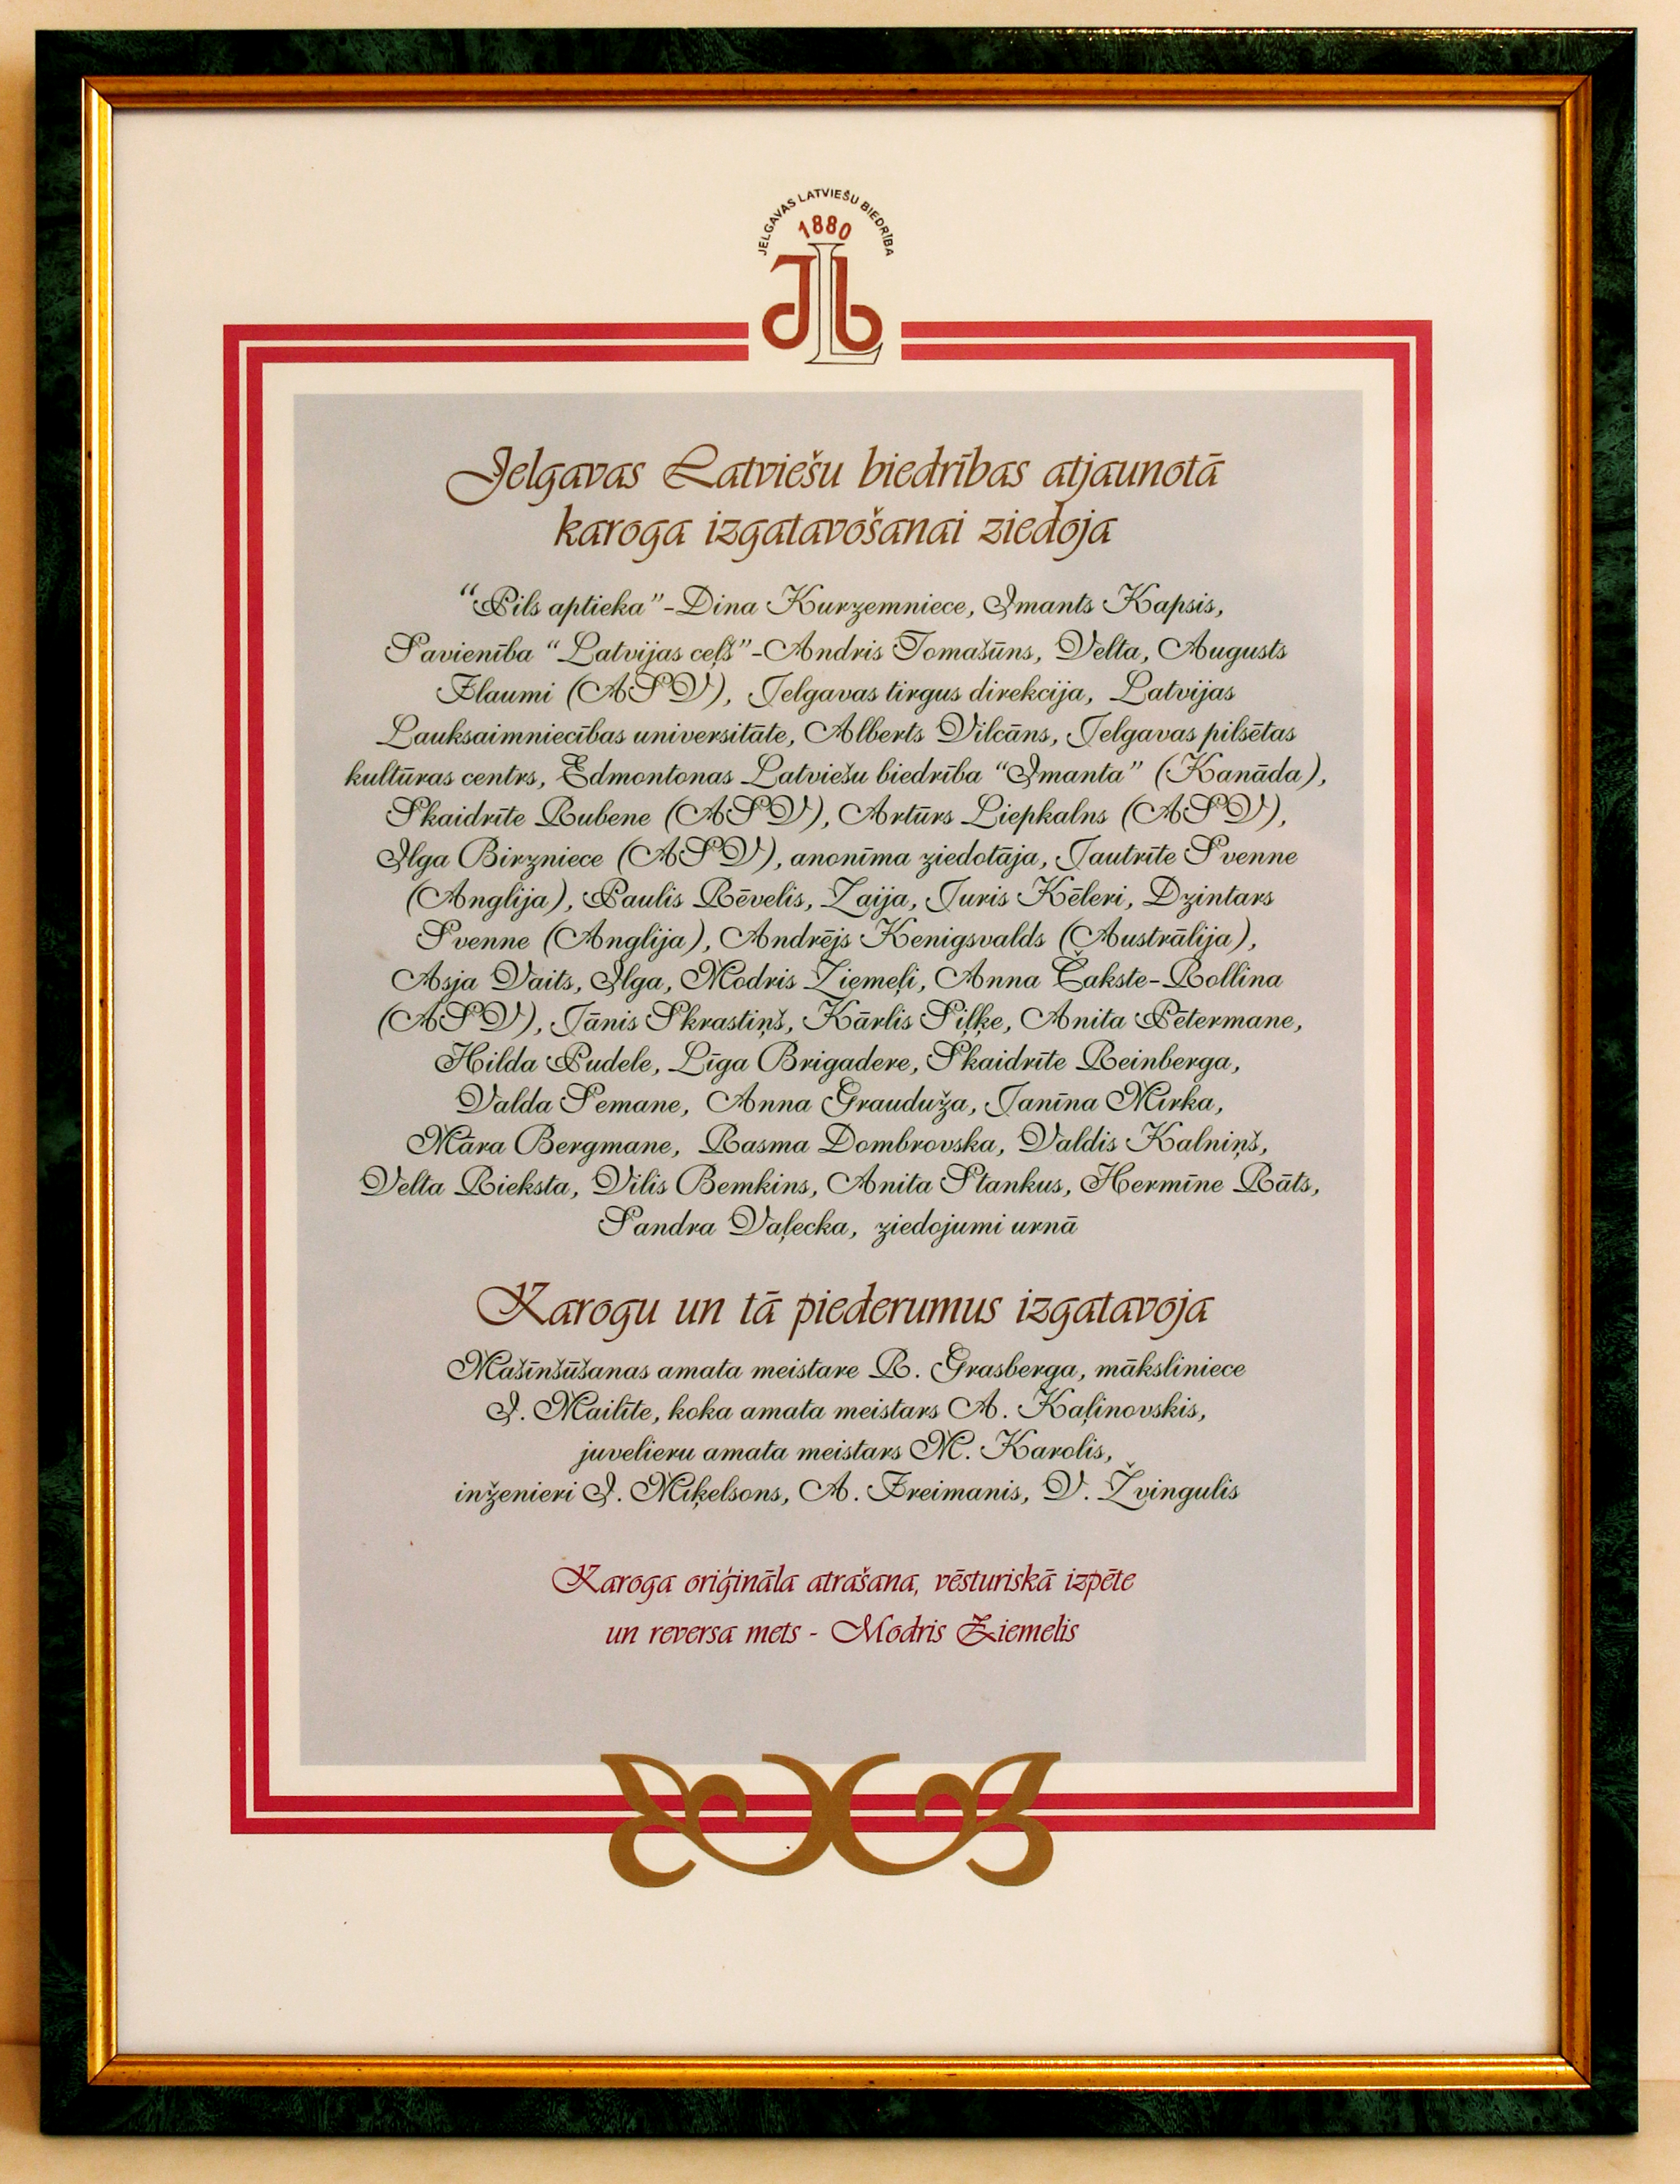 JELGAVAS LATVIEŠU BIEDRĪBA
1880
JLb
Jelgavas Latviešu biedrības atjaunotā
karoga izgatavošanai ziedoja
“Pils aptieka”-Dina Kurzemniece, Imants Kapsis,
Savienība “Latvijas ceļš”-Andris Tomašūns, Velta, Augusts
Flaumi (ASV), Jelgavas tirgus direkcija, Latvijas
Lauksaimniecības universitāte, Alberts Vilcāns, Jelgavas pilsētas
kultūras centrs, Edmontonas Latviešu biedrība “Imanta” (Kanāda),
Skaidrīte Rubene (ASV), Artūrs Liepkalns (ASV),
Ilga Birzniece (ASV), anonīma ziedotāja, Jautrīte Svenne
(Anglija), Paulis Rēvelis, Zaija, Juris Ķēleri, Dzintars
Svenne (Anglija), Andrējs Ķenigsvalds (Austrālija),
Asja Vaits, Ilga, Modris Ziemeļi, Anna Čakste-Rollina
(ASV), Jānis Skrastiņš, Kārlis Siļķe, Anita Pētermane,
Hilda Pudele, Līga Brigadere, Skaidrīte Reinberga,
Valda Semane, Anna Grauduža, Janīna Mirka,
Māra Bergmane, Rasma Dombrovska, Valdis Kalniņš,
Velta Rieksta, Vilis Bemkins, Anita Stankus, Hermīne Rāts,
Sandra Vaļecka, ziedojumi urnā
Karogu un tā piederumus izgatavoja
Mašīnšūšanas amata meistare R. Grasberga, māksliniece
I. Mailīte, koka amata meistars A. Kaļinovskis,
juvelieru amata meistars M. Karolis,
inženieri I. Miķelsons, A. Freimanis, V. Žvingulis
Karoga oriģināla atrašana, vēsturiskā izpēte
un reversa mets - Modris Ziemelis